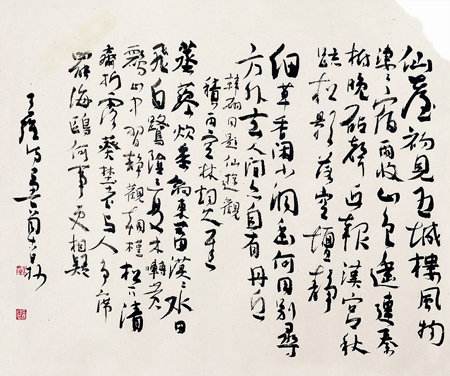 仙臺初見五城樓風物
淒淒宿雨收山色遥連秦
树晚砧聲近報漢宮秋
疏松影落空壇静
细草香闲小洞幽何用别尋
方外去人间亦自有丹丘
韓翃同題仙遊觀
積雨空林烟火遲
蒸藜炊黍餉東菑漠漠水田
飛白鷺陰陰夏木囀黄
鹂山中習静觀朝槿松下清
齋折露葵野老与人争席
罷海鷗何事更相疑